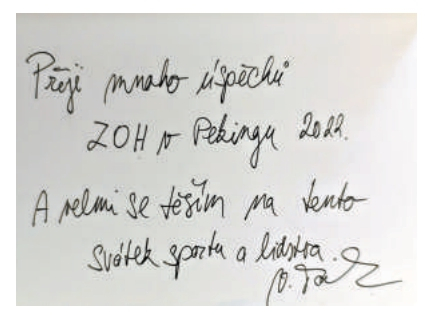 Přeji mnoho úspěchů
ZOH v Pekingu 2022.
A velmi se těším na tento
svátek sportu a lidstva.